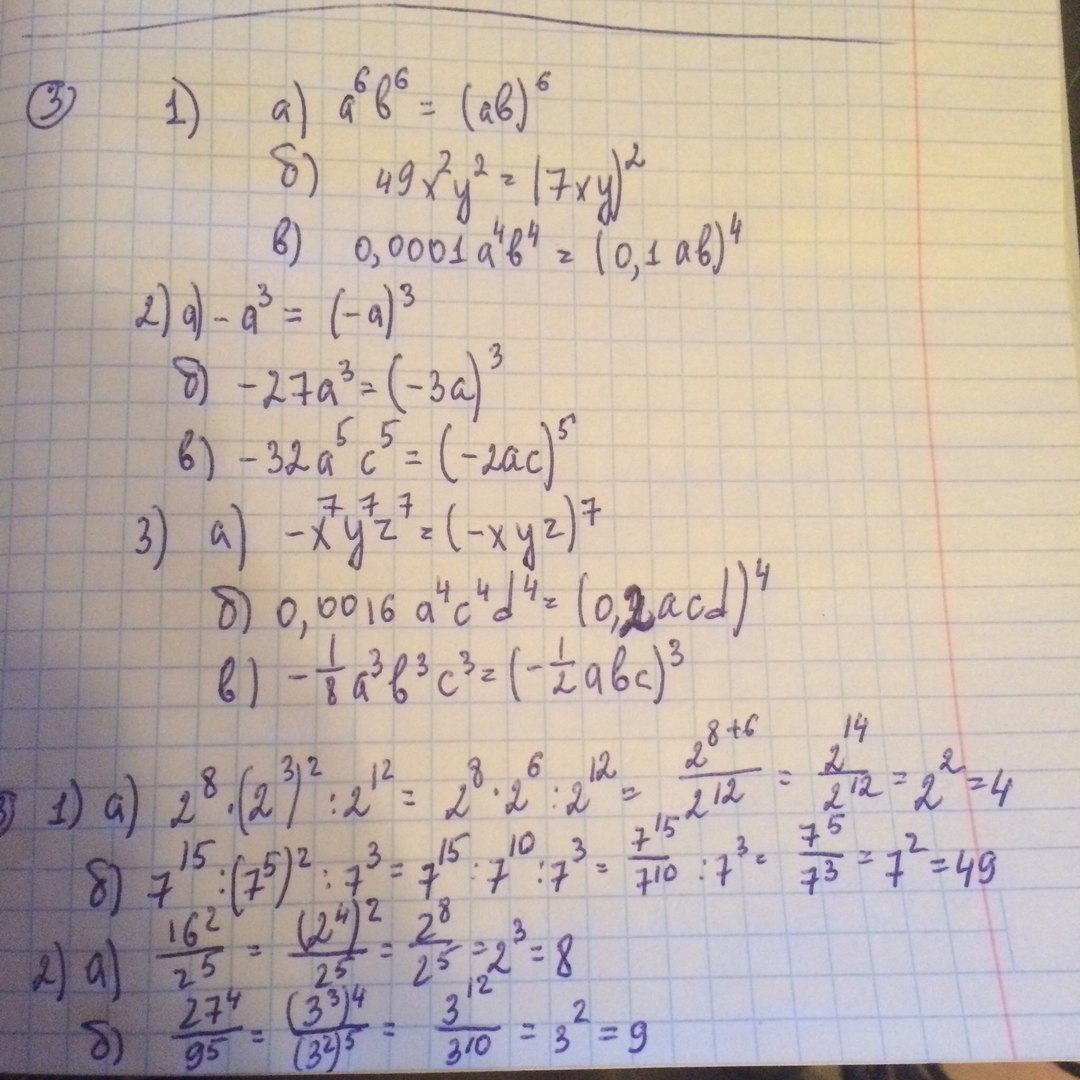 ③ 1) а) a⁶b⁶ = (ab)⁶
б) 49x²y² = (7xy)²
в) 0,0001a⁴b⁴ = (0,1ab)⁴
2) а) -a³ = (-a)³
б) -27a³ = (-3a)³
в) -32a⁵c⁵ = (-2ac)⁵
3) а) -x⁷y⁷z⁷ = (-xyz)⁷
б) 0,0016a⁴c⁴d⁴ = (0,2acd)⁴
в) -1/8a³b³c³ = (-1/2abc)³
1) а) 2⁸·(2³)²:2¹² = 2⁸·2⁶:2¹² = 2⁸⁺⁶/2¹² = 2¹⁴/2¹² = 2² = 4
б) 7¹⁵:(7⁵)²:7³ = 7¹⁵:7¹⁰:7³ = 7¹⁵/7¹⁰:7³ = 7⁵/7³ = 7² = 49
2) а) 16²/2⁵ = (2⁴)²/2⁵ = 2⁸/2⁵ = 2³ = 8
б) 27⁴/9⁵ = (3³)⁴/(3²)⁵ = 3¹²/3¹⁰ = 3² = 9